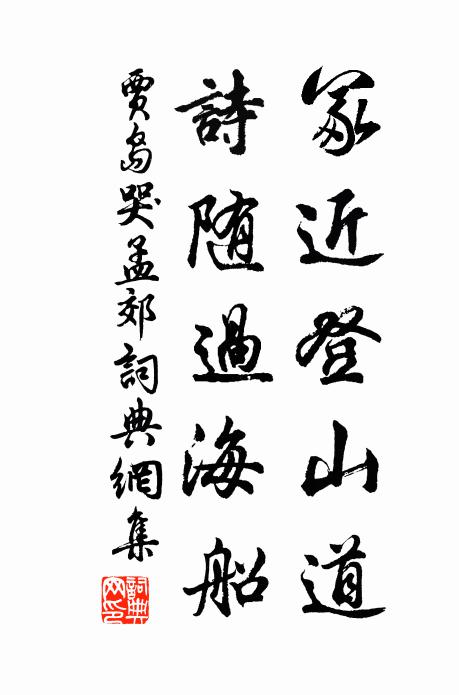 冢近登山道
詩随過海船
賈島哭孟郊詞典網集
詞典网印